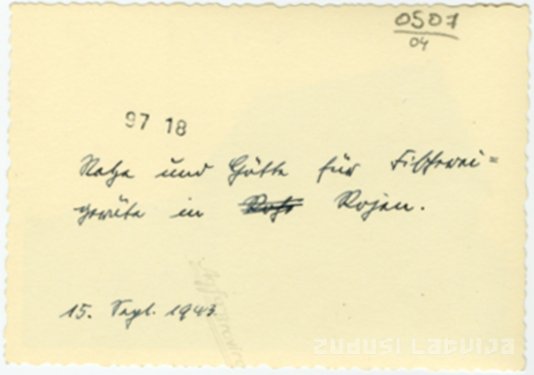 0507
04
97 18
Netze und Hütte für Fischerei=
geräte in Rojen.
15. Sept. 1943
zudusi Latvija